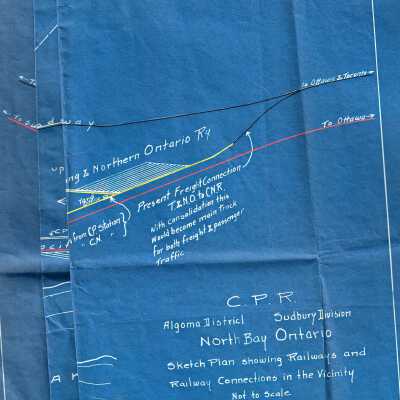 To Ottawa & Toronto
To Sudbury
To Ottawa
ng & Northern Ontario Ry
Yard
Present Freight Connection
T.& N.O. to C.N.R.
With consolidation this
would become main track
for both freight & passenger
Traffic
From C.P. Station
" C.N. "
C.P.R.
Algoma District Sudbury Division
North Bay Ontario
Sketch Plan showing Railways and
Railway Connections in the Vicinity
Not to Scale